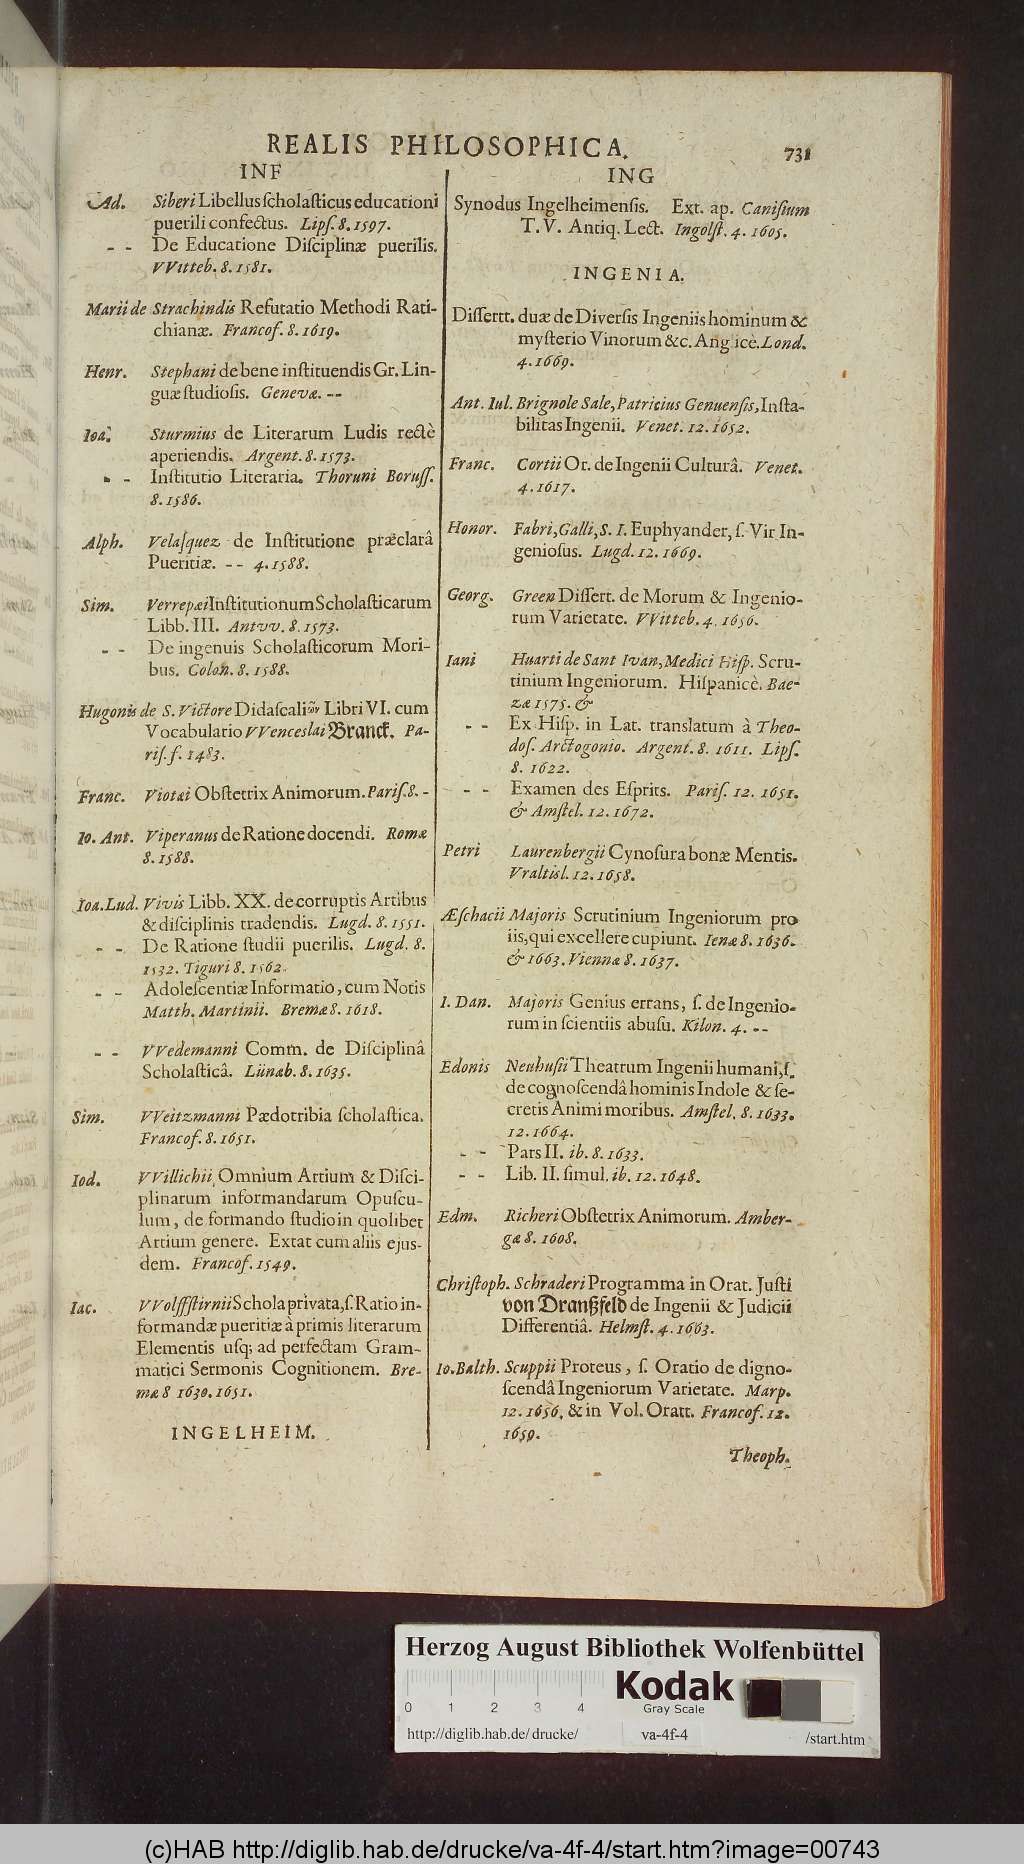 REALIS PHILOSOPHICA.
731
INF
Ad. Siberi Libellus ſcholaſticus educationi
puerili confectus. Lipſ. 8. 1597.
- - De Educatione Diſciplinæ puerilis.
VVitteb. 8. 1581.
Marii de Strachindis Refutatio Methodi Rati-
chianæ. Francof. 8. 1619.
Henr. Stephani de bene inſtituendis Gr. Lin-
guæ ſtudioſis. Genevæ. --
Ioa. Sturmius de Literarum Ludis rectè
aperiendis. Argent. 8. 1573.
- - Inſtitutio Literaria. Thoruni Boruſſ.
8. 1586.
Alph. Velaſquez de Inſtitutione præclarâ
Pueritiæ. -- 4. 1588.
Sim. Verrepæi Inſtitutionum Scholaſticarum
Libb. III. Antvv. 8. 1573.
- - De ingenuis Scholaſticorum Mori-
bus. Colon. 8. 1588.
Hugonis de S. Victore Didaſcaliῶν Libri VI. cum
Vocabulario VVenceslai Branck. Pa-
riſ. f. 1483.
Franc. Viotæi Obſtetrix Animorum. Pariſ. 8. -
Io. Ant. Viperanus de Ratione docendi. Romæ
8. 1588.
Ioa. Lud. Vivis Libb. XX. de corruptis Artibus
& diſciplinis tradendis. Lugd. 8. 1551.
- - De Ratione ſtudii puerilis. Lugd. 8.
1532. Tiguri 8. 1562.
- - Adoleſcentiæ Informatio, cum Notis
Matth. Martinii. Bremæ 8. 1618.
- - VVedemanni Comm. de Diſciplinâ
Scholaſticâ. Lünæb. 8. 1635.
Sim. VVeitzmanni Pædotribia ſcholaſtica.
Francof. 8. 1651.
Iod. VVillichii Omnium Artium & Diſci-
plinarum informandarum Opuſcu-
lum, de formando ſtudio in quolibet
Artium genere. Extat cum aliis ejus-
dem. Francof. 1549.
Iac. VVolffſtirnii Schola privata, ſ. Ratio in-
formandæ pueritiæ à primis literarum
Elementis uſq; ad perfectam Gram-
matici Sermonis Cognitionem. Bre-
mæ 8 1630. 1651.
INGELHEIM.
ING
Synodus Ingelheimenſis. Ext. ap. Caniſium
T. V. Antiq. Lect. Ingolſt. 4. 1605.
INGENIA.
Diſſertt. duæ de Diverſis Ingeniis hominum &
myſterio Vinorum &c. Anglicè. Lond.
4. 1669.
Ant. Iul. Brignole Sale, Patricius Genuenſis, Inſta-
bilitas Ingenii. Venet. 12. 1652.
Franc. Cortii Or. de Ingenii Culturâ. Venet.
4. 1617.
Honor. Fabri, Galli, S. I. Euphyander, ſ. Vir In-
genioſus. Lugd. 12. 1669.
Georg. Green Diſſert. de Morum & Ingenio-
rum Varietate. VVitteb. 4. 1656.
Iani Huarti de Sant Ivan, Medici Hiſp. Scru-
tinium Ingeniorum. Hiſpanicè. Bae-
zæ 1575. &
- - Ex Hiſp. in Lat. translatum à Theo-
doſ. Arctogonio. Argent. 8. 1611. Lipſ.
8. 1622.
- - Examen des Eſprits. Pariſ. 12. 1651.
& Amſtel. 12. 1672.
Petri Laurenbergii Cynoſura bonæ Mentis.
Vratisl. 12. 1658.
Æſchacii Majoris Scrutinium Ingeniorum pro
iis, qui excellere cupiunt. Ienæ 8. 1636.
& 1663. Viennæ 8. 1637.
I. Dan. Majoris Genius errans, ſ. de Ingenio-
rum in ſcientiis abuſu. Kilon. 4. --
Edonis Neuhuſii Theatrum Ingenii humani, ſ.
de cognoſcendâ hominis Indole & ſe-
cretis Animi moribus. Amſtel. 8. 1633.
12. 1664.
- - Pars II. ib. 8. 1633.
- - Lib. II. ſimul. ib. 12. 1648.
Edm. Richeri Obſtetrix Animorum. Amber-
gæ 8. 1608.
Chriſtoph. Schraderi Programma in Orat. Juſti
von Dranßfeld de Ingenii & Judicii
Differentiâ. Helmſt. 4. 1663.
Io. Balth. Scuppii Proteus, ſ. Oratio de digno-
ſcendâ Ingeniorum Varietate. Marp.
12. 1656. & in Vol. Oratt. Francof. 12.
1659.
Theoph.
Herzog August Bibliothek Wolfenbüttel
0 1 2 3 4
Kodak
Gray Scale
http://diglib.hab.de/drucke/ va-4f-4 /start.htm
(c)HAB http://diglib.hab.de/drucke/va-4f-4/start.htm?image=00743